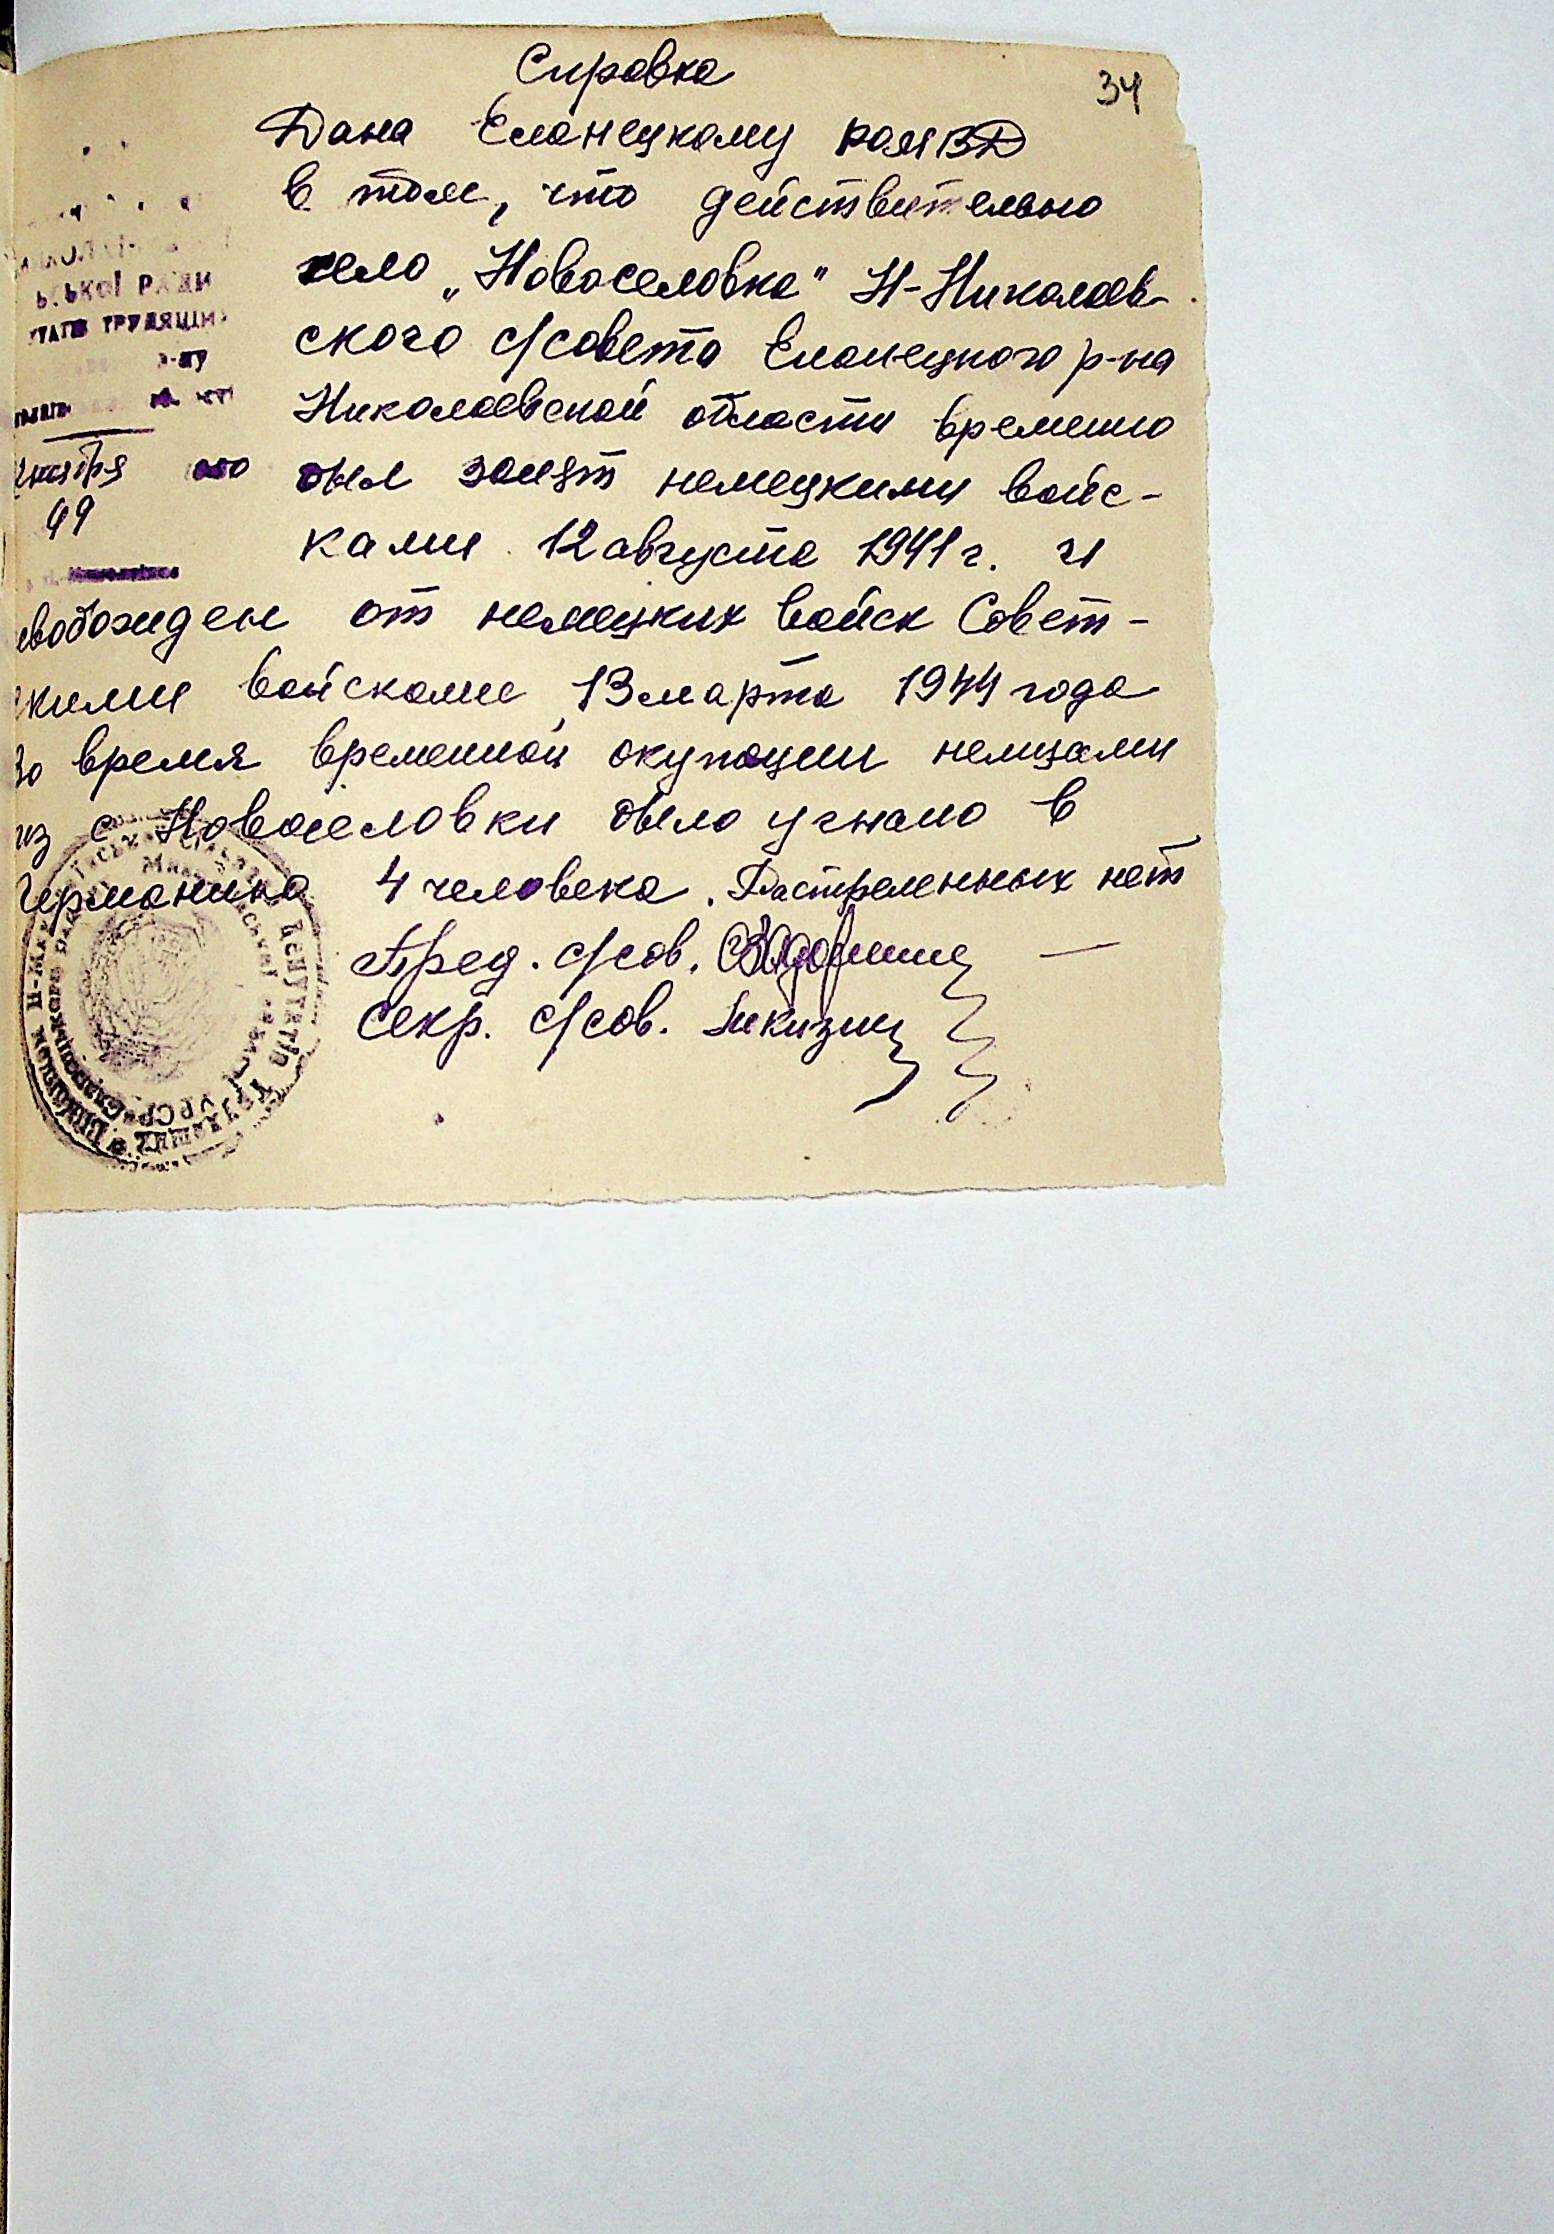 34
Справка
Дана Еланецкому РОМВД
в том, что действительно
село „Новоселовка" Н-Николаев-
ского с/совета Еланецкого р-на
Николаевской области временно
был занят немецкими войс-
ками 12 августа 1941 г. и
свобожден от немецких войск Совет-
кими войсками 13 марта 1944 года
Во время временной окупации немцами
из с Новоселовки было угнано в
Германию 4 человека. Расстреленных нет
Пред. с/сов.
Секр. с/сов.
ЬСЬКОЇ РАДИ
ТАТІВ ТРУДЯЩИХ
р-ну
49